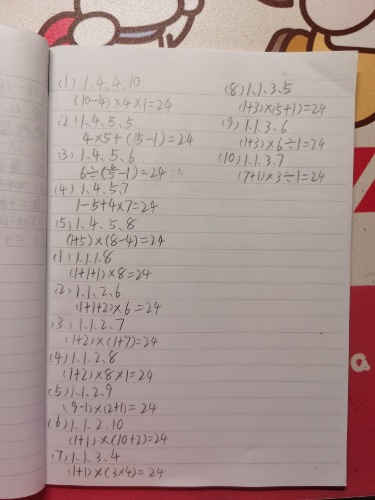 (1) 1、4、4、10
(10-4)×4×1=24
(2) 1、4、5、5
4×5+(5-1)=24
(3) 1、4、5、6
6÷(5/4-1)=24
(4) 1、4、5、7
1-5+4×7=24
(5) 1、4、5、8
(1+5)×(8-4)=24
(1) 1、1、1、8
(1+1+1)×8=24
(2) 1、1、2、6
(1+1+2)×6=24
(3) 1、1、2、7
(1+2)×(1+7)=24
(4) 1、1、2、8
(1+2)×8×1=24
(5) 1、1、2、9
(9-1)×(2+1)=24
(6) 1、1、2、10
(1+1)×(10+2)=24
(7) 1、1、3、4
(1+1)×(3×4)=24
(8) 1、1、3、5
(1+3)×(5+1)=24
(9) 1、1、3、6
(1+3)×6÷1=24
(10) 1、1、3、7
(7+1)×3÷1=24